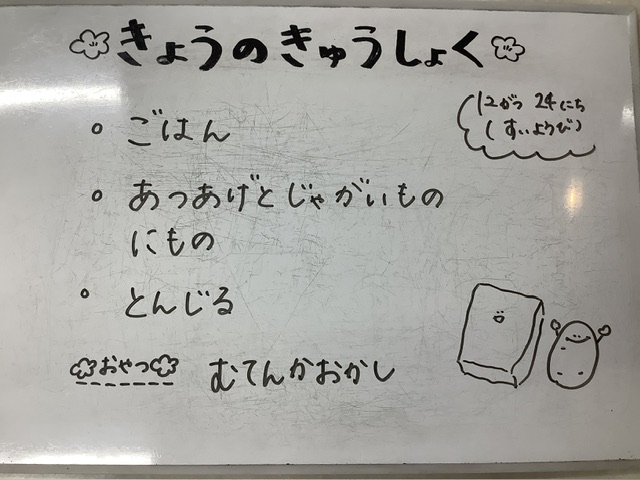 きょうのきゅうしょく
12がつ 24にち
(すいようび)
。ごはん
。あつあげとじゃがいもの
にもの
。とんじる
おやつ むてんかおかし